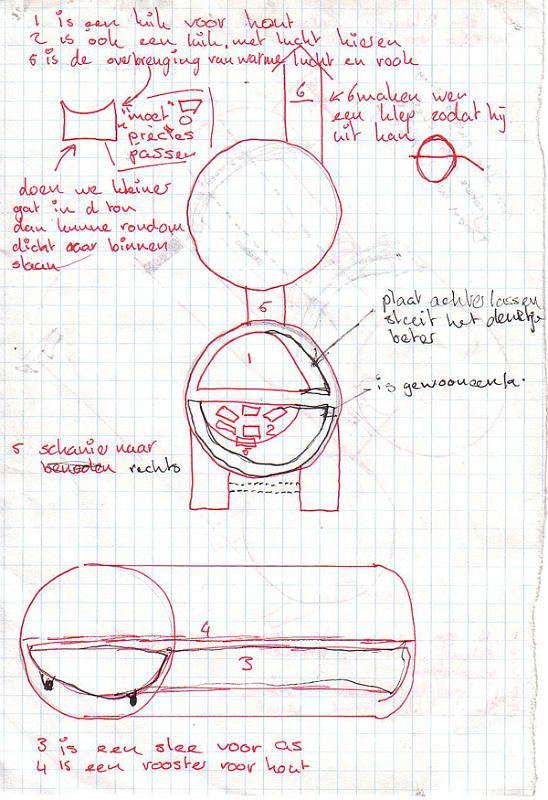 1 is een luik voor hout
2 is ook een luik, met lucht kieren
5 is de overbrenging van warme lucht en rook
6
↙ 6 maken we
een klep zodat hij
uit kan
"moet
precies
passen
doen we kleiner
gat in d ton
dan kunne rondom
dicht naar binnen
slaan
5
plaat achterlassen
steeit het deurtje
beter
1
is gewoon een
2
5 schanier naar
beneden rechts
4
3
3 is een slee voor as
4 is een rooster voor hout